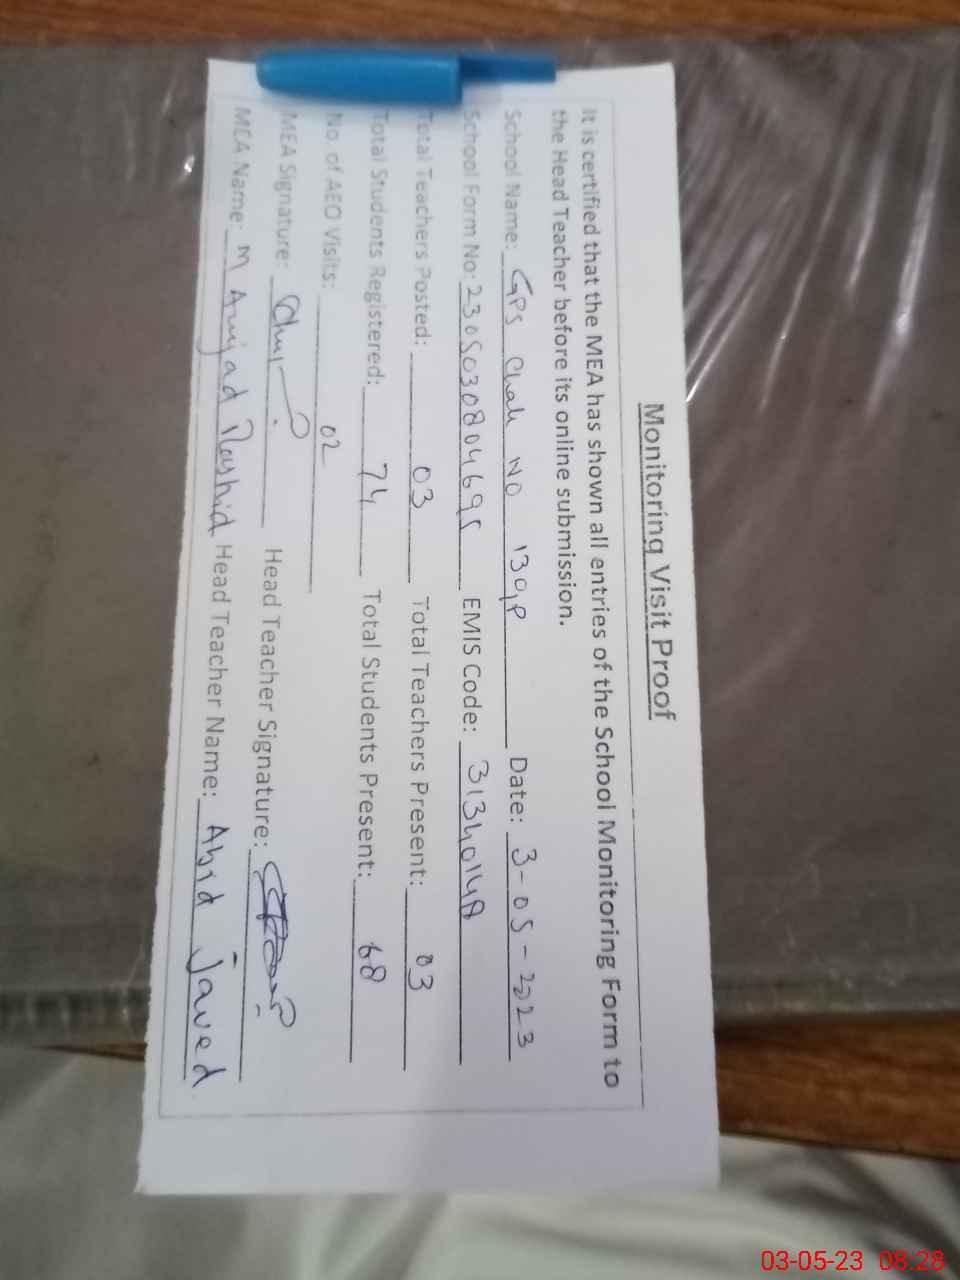 Monitoring Visit Proof
It is certified that the MEA has shown all entries of the School Monitoring Form to
the Head Teacher before its online submission.
School Name: GPS Chak NO 130,P Date: 3-05-2023
School Form No: 230503080469S EMIS Code:
Total Teachers Posted: 03 Total Teachers Present: 03
Total Students Registered: 74 Total Students Present: 68
No. of AEO Visits: 02
MEA Signature: Head Teacher Signature:
MEA Name: M Amjad Rashid Head Teacher Name: Abid Javed
03-05-23 08:28